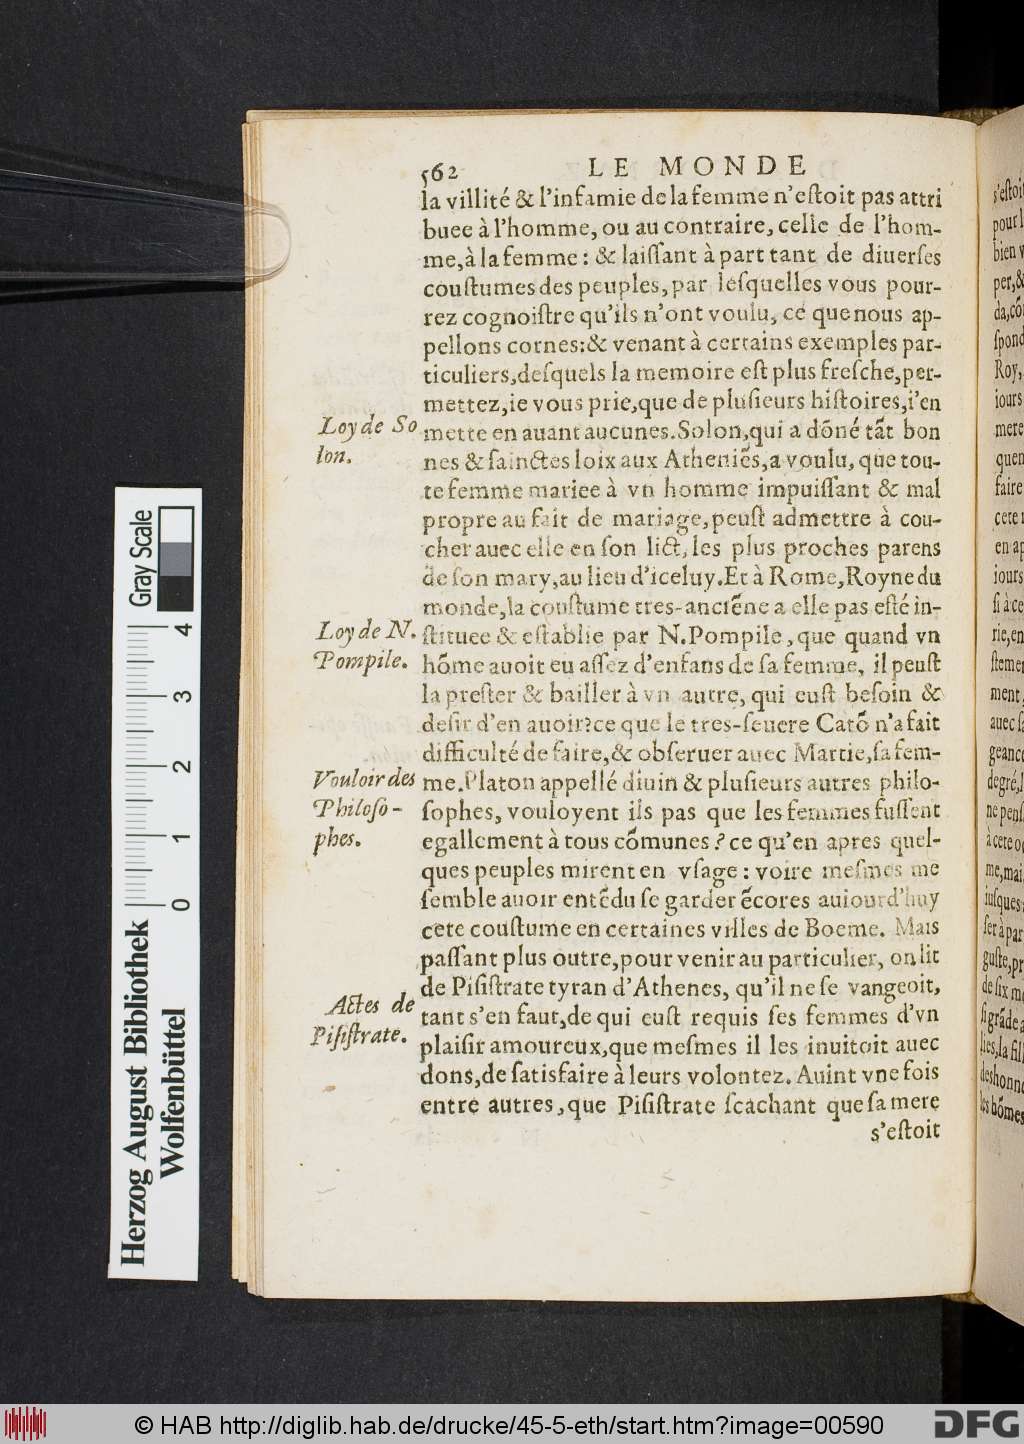 562 LE MONDE
la villité & l'infamie de la femme n'eſtoit pas attri
buee à l'homme, ou au contraire, celle de l'hom-
me, à la femme: & laiſſant à part tant de diuerſes
couſtumes des peuples, par leſquelles vous pour-
rez cognoiſtre qu'ils n'ont voulu, ce que nous ap-
pellons cornes:& venant à certains exemples par-
ticuliers, deſquels la memoire eſt plus freſche, per-
mettez, ie vous prie, que de pluſieurs hiſtoires, i'en
Loy de So
lon.
mette en auant aucunes. Solon, qui a dõné tãt bon
nes & ſainctes loix aux Atheniẽs, a voulu, que tou-
te femme mariee à vn homme impuiſſant & mal
propre au fait de mariage, peuſt admettre à cou-
cher auec elle en ſon lict, les plus proches parens
de ſon mary, au lieu d'iceluy. Et à Rome, Royne du
monde, la couſtume tres-anciẽne a elle pas eſté in-
Loy de N.
Pompile.
ſtituee & eſtablie par N. Pompile, que quand vn
hõme auoit eu aſſez d'enfans de ſa femme, il peuſt
la preſter & bailler à vn autre, qui euſt beſoin &
deſir d'en auoir? ce que le tres-ſeuere Catõ n'a fait
difficulté de faire, & obſeruer auec Martie, ſa fem-
Vouloir des
Philoſo-
phes.
me. Platon appellé diuin & pluſieurs autres philo-
ſophes, vouloyent ils pas que les femmes fuſſent
egallement à tous cõmunes? ce qu'en apres quel-
ques peuples mirent en vſage: voire meſmes me
ſemble auoir entẽdu ſe garder ẽcores auiourd'huy
cete couſtume en certaines villes de Boeme. Mais
paſſant plus outre, pour venir au particulier, on lit
Actes de
Piſiſtrate.
de Piſiſtrate tyran d'Athenes, qu'il ne ſe vangeoit,
tant s'en faut, de qui euſt requis ſes femmes d'vn
plaiſir amoureux, que meſmes il les inuitoit auec
dons, de ſatisfaire à leurs volontez. Auint vne fois
entre autres, que Piſiſtrate ſcachant que ſa mere
s'eſtoit
Gray Scale
4 3 2 1 0
Herzog August Bibliothek
Wolfenbüttel
© HAB http://diglib.hab.de/drucke/45-5-eth/start.htm?image=00590
DFG